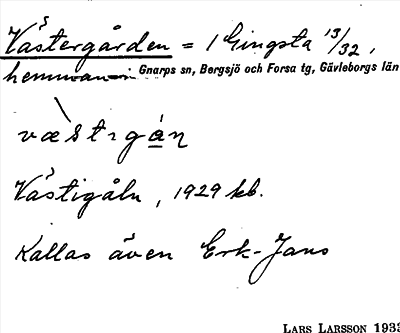 Västergården = 1 Gingsta 13/32,
hemman i Gnarps sn, Bergsjö och Forsa tg, Gävleborgs län
væstıgån
Västigåln, 1929 kb.
Kallas även Erk-Jans
LARS LARSSON 1933